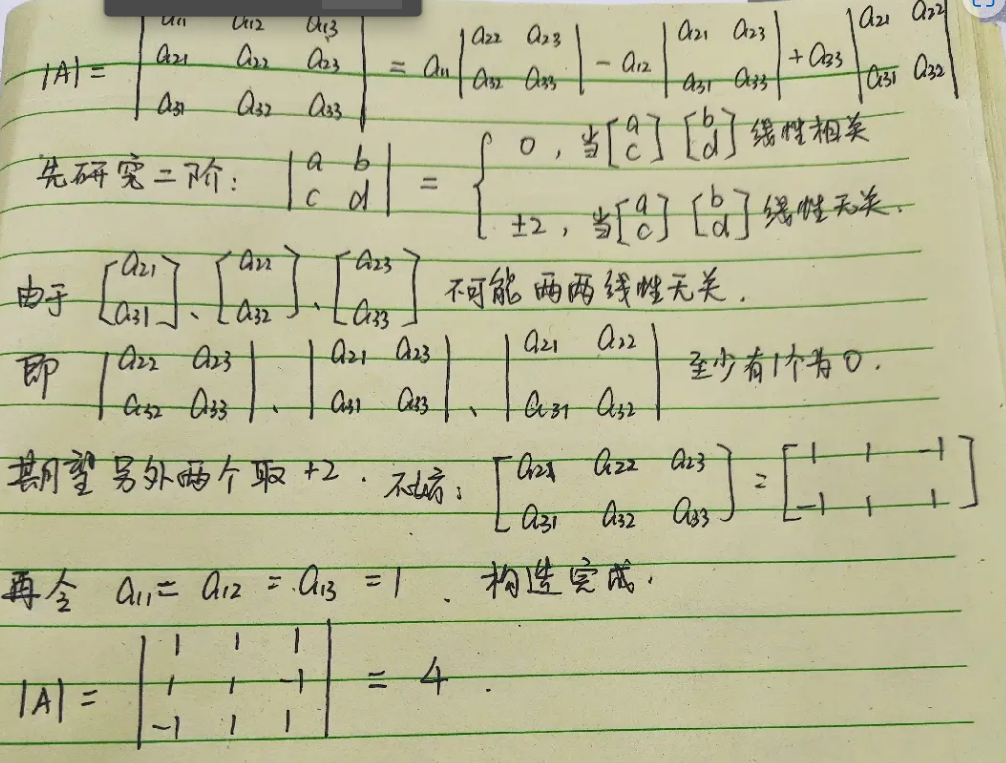 |A| = | a11 a12 a13 ; a21 a22 a23 ; a31 a32 a33 | = a11 | a22 a23 ; a32 a33 | - a12 | a21 a23 ; a31 a33 | + a33 | a21 a22 ; a31 a32 |
先研究二阶: | a b ; c d | = { 0, 当[a ; c] [b ; d] 线性相关
±2, 当[a ; c] [b ; d] 线性无关.
由于 [a21 ; a31]、[a22 ; a32]、[a23 ; a33] 不可能两两线性无关.
即 | a22 a23 ; a32 a33 |、| a21 a23 ; a31 a33 |、| a21 a22 ; a31 a32 | 至少有1个为0.
期望另外两个取+2. 不妨: [a21 a22 a23 ; a31 a32 a33] = [1 1 -1 ; -1 1 1]
再令 a11 = a12 = a13 = 1. 构造完成.
|A| = | 1 1 1 ; 1 1 -1 ; -1 1 1 | = 4.